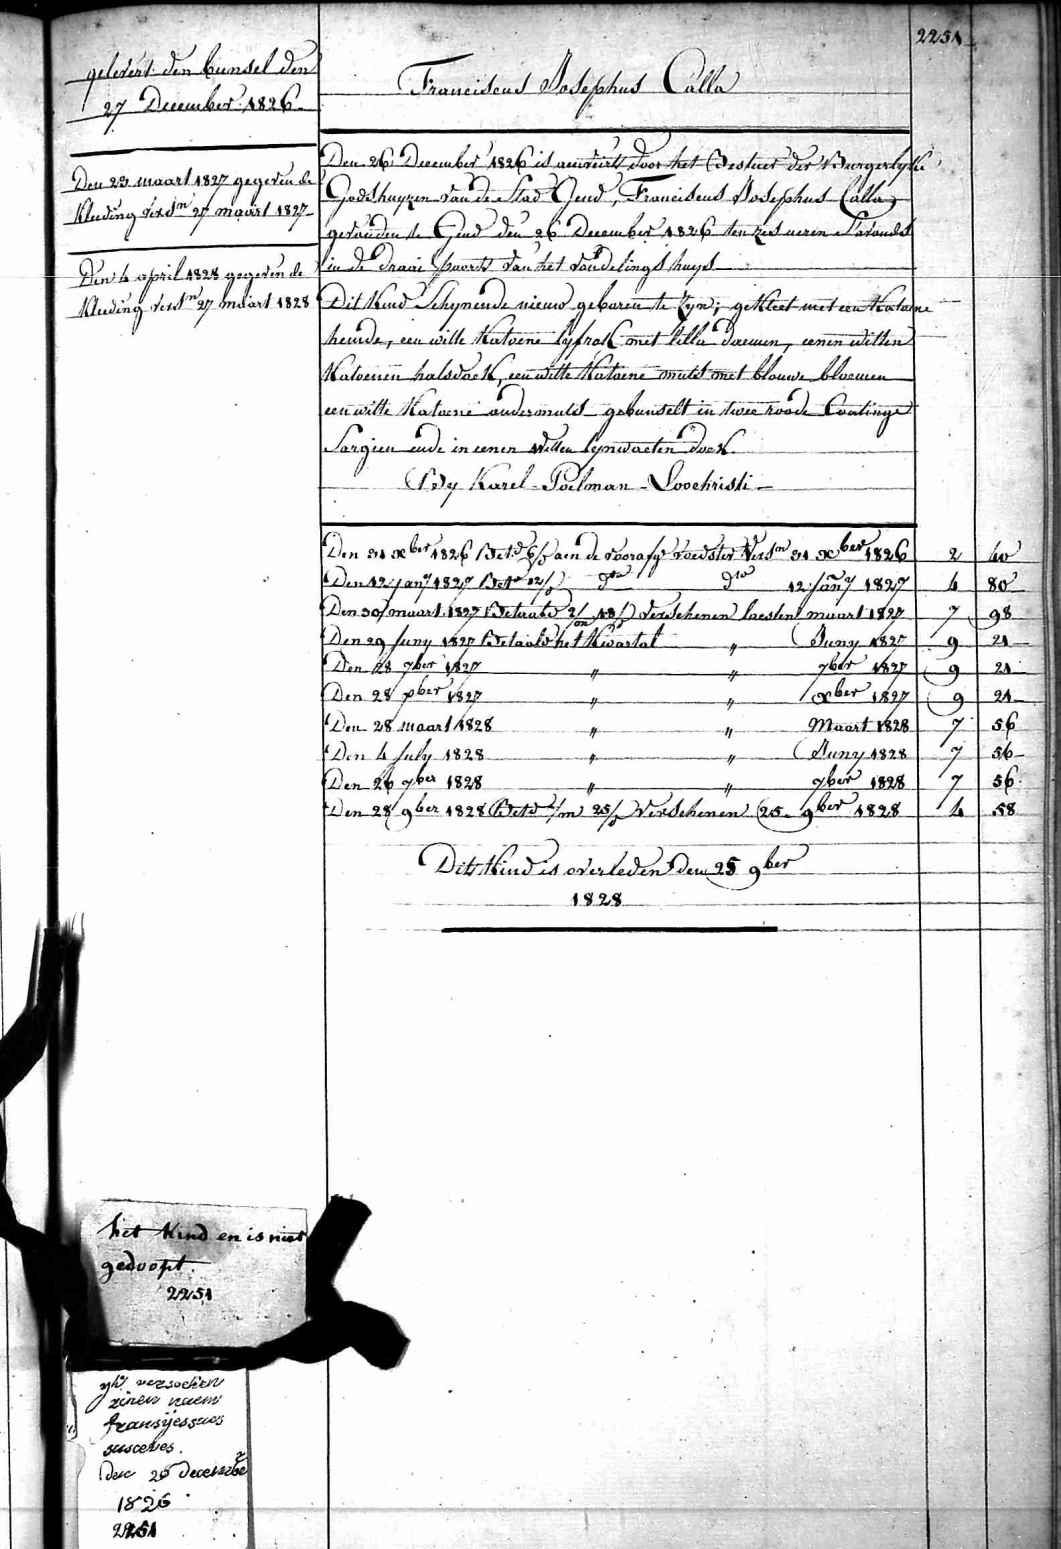 2251
gelevert den bunsel den
27 December 1826
Den 23 maart 1827 gegeven de
Kleeding versn 27 maart 1827
Den 4 april 1828 gegeven de
Kleeding versn 27 maart 1828
Franciscus Josephus Calla
Den 26 December 1826 is aenveird door het Bestuer der Burgerlyke
Godshuyzen van de Stad Gend, Franciscus Josephus Calla
gevonden te Gend den 26 December 1826 ten zes ueren s'avonds
in de Draai poorte van het vondelings huys
Dit Kind Schynende nieuw geboren te zyn; gekleet met een Katoene
hemde, een witte Katoene lyfrok met lilla doemen, eenen witten
Katoenen halsdoek, een witte Katoene muts met blauwe bloemen
een witte Katoene ondermuts gebunselt in twee roode Coatings
Sargien ende in eenen witten lynwaeten doek.
By Karel Poelman Loochristi
Den 31 xber 1826 Betd 6/d aen de voorafg voedster versn 31 xber 1826 2 40
Den 12 jany 1827 Betd 12/d dto dto 12 jany 1827 4 80
Den 30 maart 1827 Betaald 2/m 18/d verschenen laesten maart 1827 7 98
Den 29 Juny 1827 Betaald het Kwartal " Juny 1827 9 21
Den 28 7ber 1827 " " 7ber 1827 9 21
Den 28 xber 1827 " " xber 1827 9 21
Den 28 maart 1828 " " Maart 1828 7 56
Den 4 July 1828 " " Juny 1828 7 56
Den 26 7ber 1828 " " 7ber 1828 7 56
Den 28 9ber 1828 Betd 1/m 25/d verschenen 25 9ber 1828 4 58
Dit Kind is overleden den 25 9ber
1828
het Kind en is niet
gedoopt.
2251
yk versoeken
zinen naem
fransijessues
susceves.
den 26 december
1826
2251